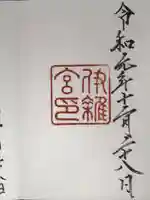 令和元年十月二十八日
伊雜
宮印